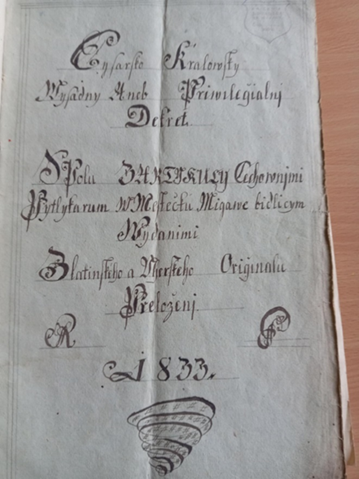 Cysarsko Kralowsky
Wysadny Aneb Priwilegialnj
Dekret
Spolu Z ARTIKULY Cechownjmi
Pytlykarum w Mestečku Migawe bidlicym
Wydanimi
Zlatinskeho a Uherskeho Originalu
Preloženj
A
1833.